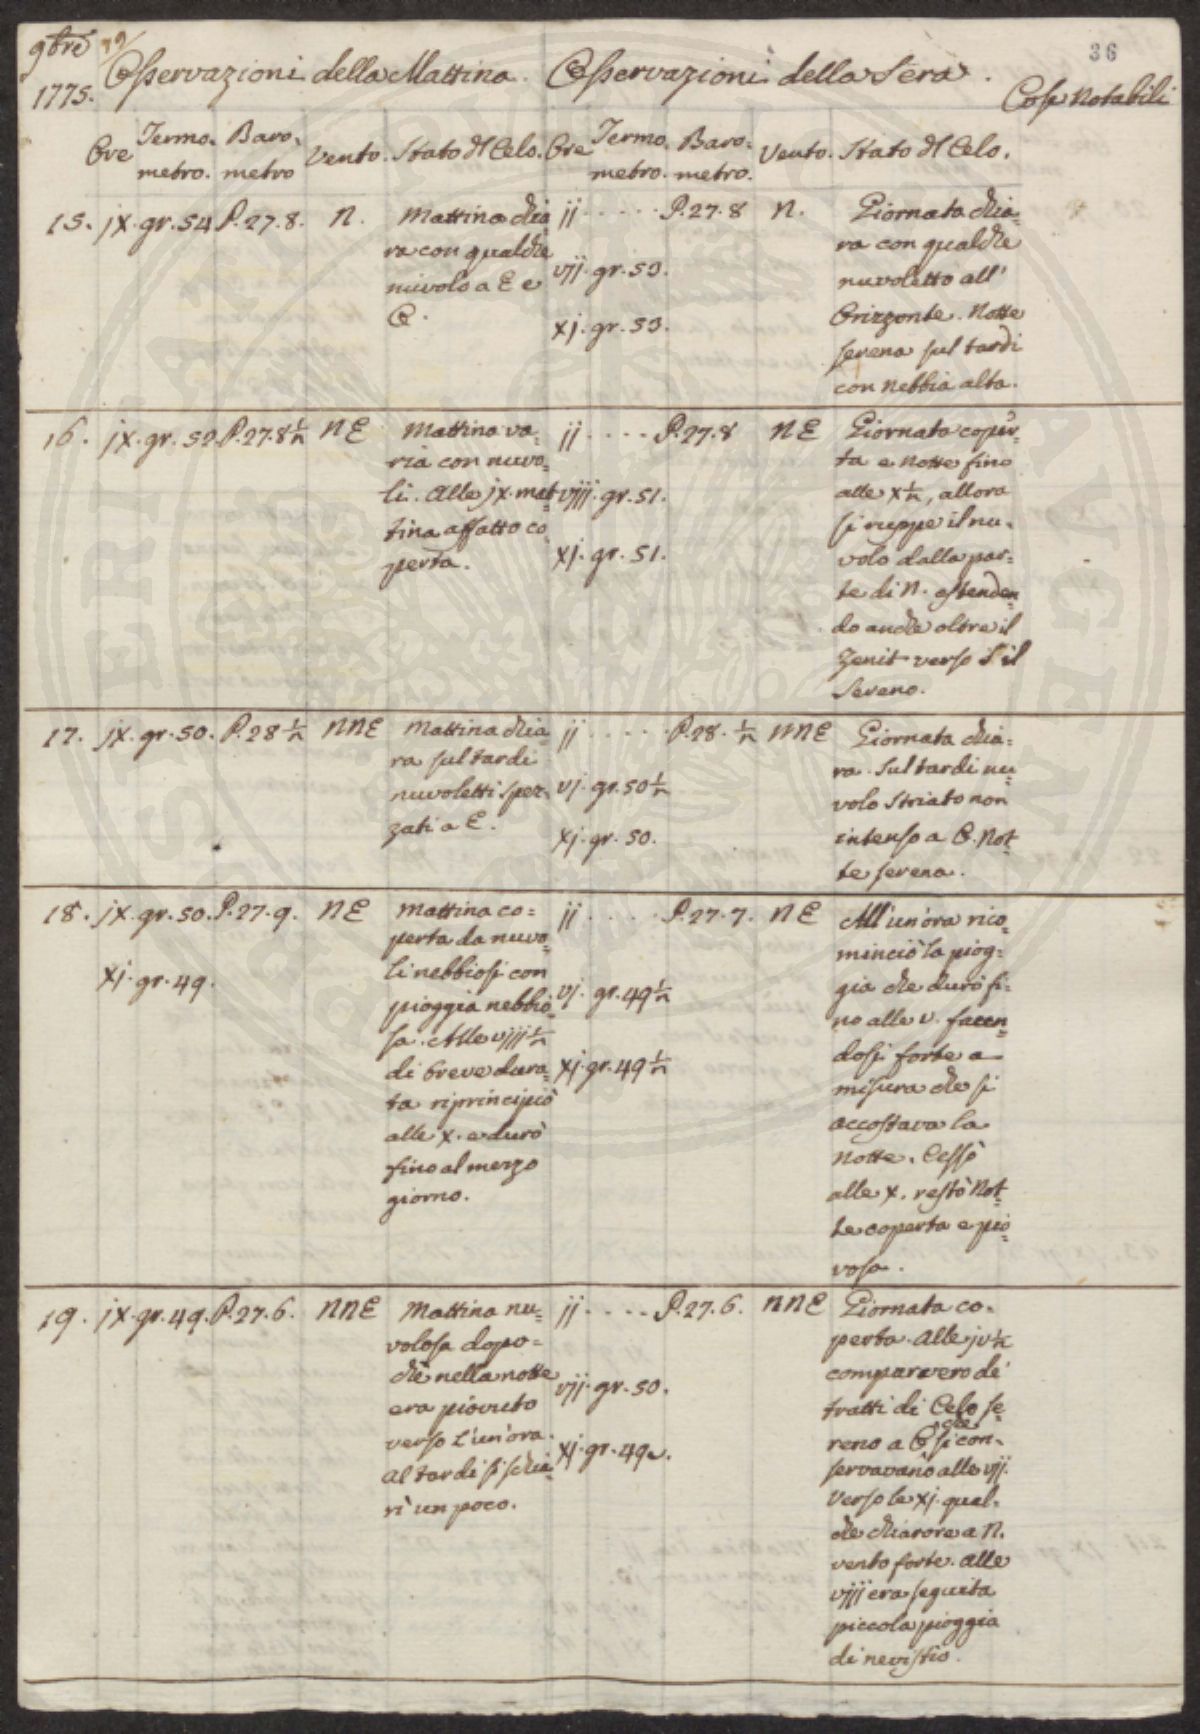 9bre 79
36
Osservazioni della Mattina. Osservazioni della Sera.
1775.
Cose Notabili
Ore Termo- Baro- Vento. Stato dl Celo. Ore Termo- Baro- Vento. Stato dl Celo.
metro. metro metro. metro.
15. jx. gr. 54 P. 27. 8. N. Mattina chia
ra con qualche
nuvolo a E e
O.
ij ..... P. 27. 8 N. Giornata chia
vij. gr. 53. ra con qualche
nuvoletto all'
xj. gr. 53. Orizzonte. Notte
serena sul tardi
con nebbia alta.
16. jx. gr. 52. P. 27. 8 1/2 NE Mattina va=
ria con nuvo=
li. Alle jx. mat=
tina affatto co
perta.
ij .... P. 27. 8 NE Giornata coper=
ta e notte fino
viij. gr. 51. alle x 1/2, allora
si ruppe il nu-
xj. gr. 51. volo dalla par=
te di N. estenden=
do anche oltre il
Zenit verso S il
Sereno.
17. jx. gr. 50. P. 28 1/2 NNE Mattina chia
ra sul tardi
nuvoletti spez=
zati a E.
ij ..... P. 28. 1/2 NNE Giornata chia=
ra. Sul tardi nu=
vj. gr. 50 1/2 volo striato non
xj. gr. 50. intenso a O. Not=
te serena.
18. jx. gr. 50. P. 27. 9. NE Mattina co=
perta da nuvo=
xj. gr. 49. li nebbiosi con
pioggia nebbio=
sa. Alle viij 1/2
di breve dura=
ta riprincipiò
alle x. e durò
fino al mezzo
giorno.
ij ..... P. 27. 7. NE All'un'ora rico=
minciò la piog=
vj. gr. 49 1/2 gia che durò fi=
no alle v. facen=
xj. gr. 49 1/2 dosi forte a
misura che si
accostava la
notte. Cessò
alle x. restò Not=
te coperta e pio=
vosa.
19. jx. gr. 49. P. 27. 6. NNE Mattina nu=
volosa dopo=
chè nella notte
era piovuto
verso l'un'ora.
Al tardi si schia=
rì un poco.
ij .... P. 27. 6. NNE Giornata co-
perta. Alle jv 1/2
comparvero de'
vij. gr. 50. tratti di Celo se=
reno a O che si con-
xj. gr. 49. servavano alle vij.
Verso le xj. qual-
che chiarore a N.
vento forte. Alle
viij era seguita
piccola pioggia
di nevistio.